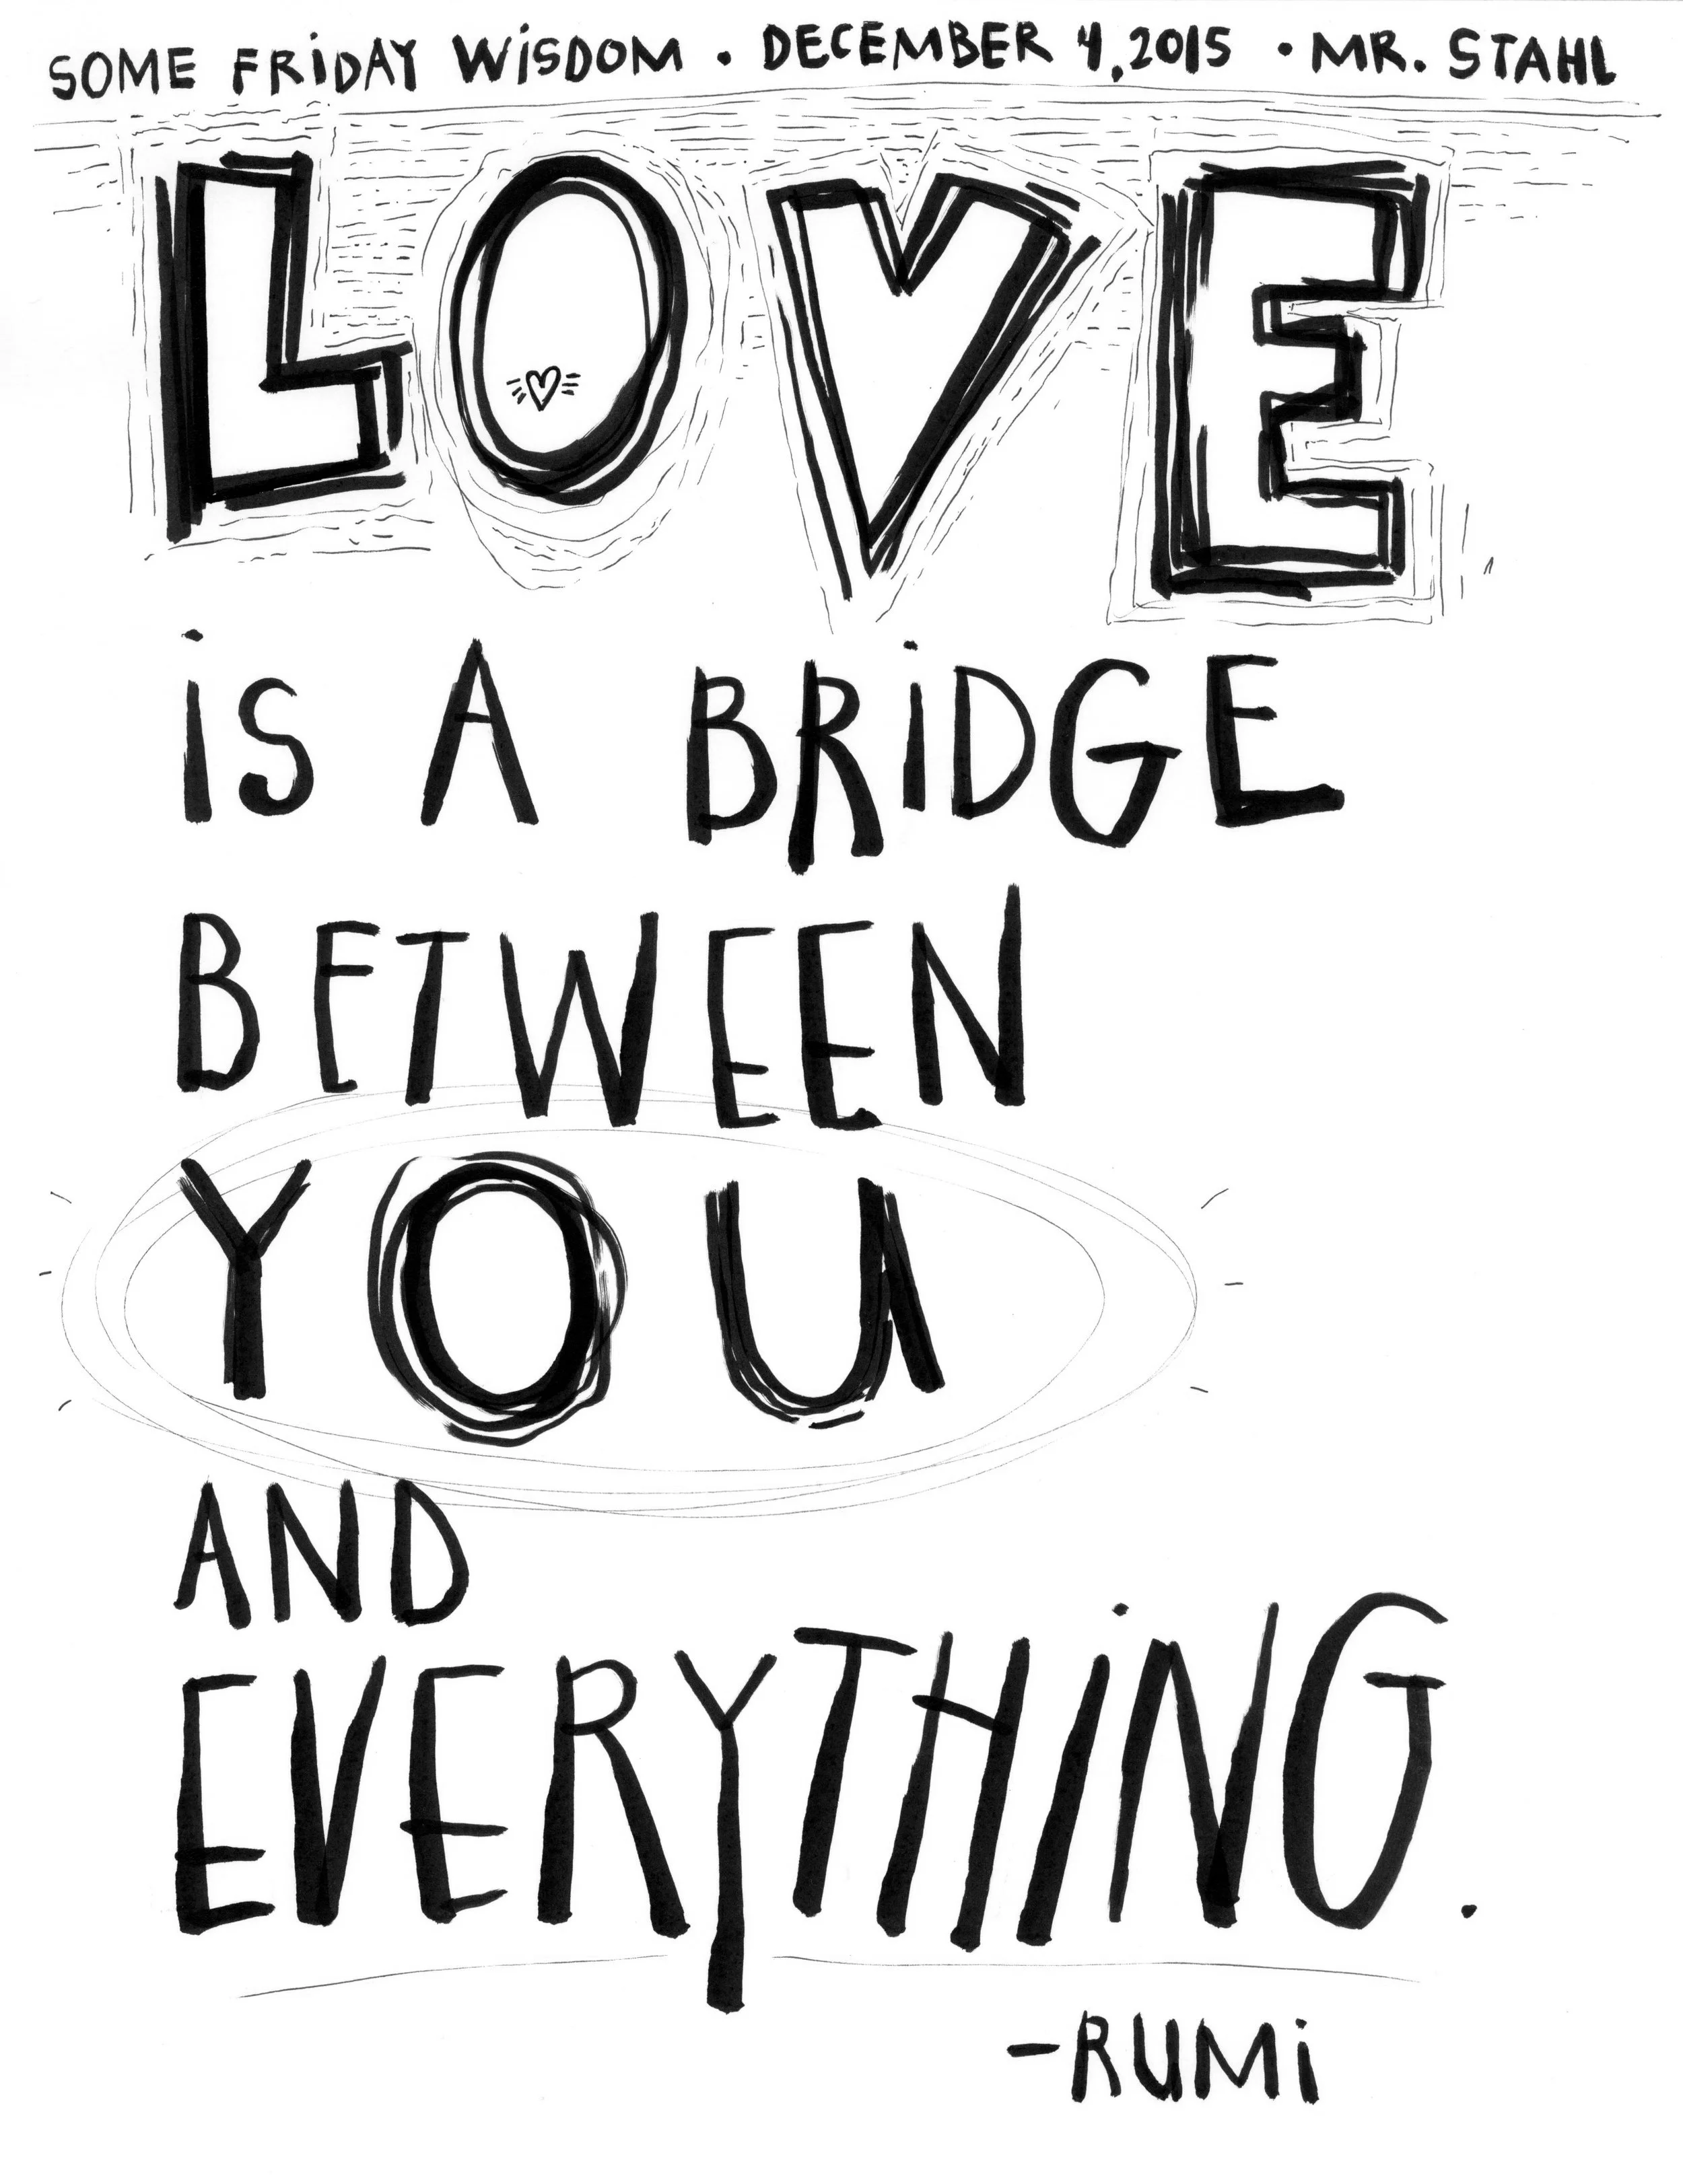 SOME FRiDAY WiSDOM • DECEMBER 4, 2015 • MR. STAHL
LOVE
iS A BRiDGE
BETWEEN
YOU
AND
EVERYTHiNG.
-RUMi